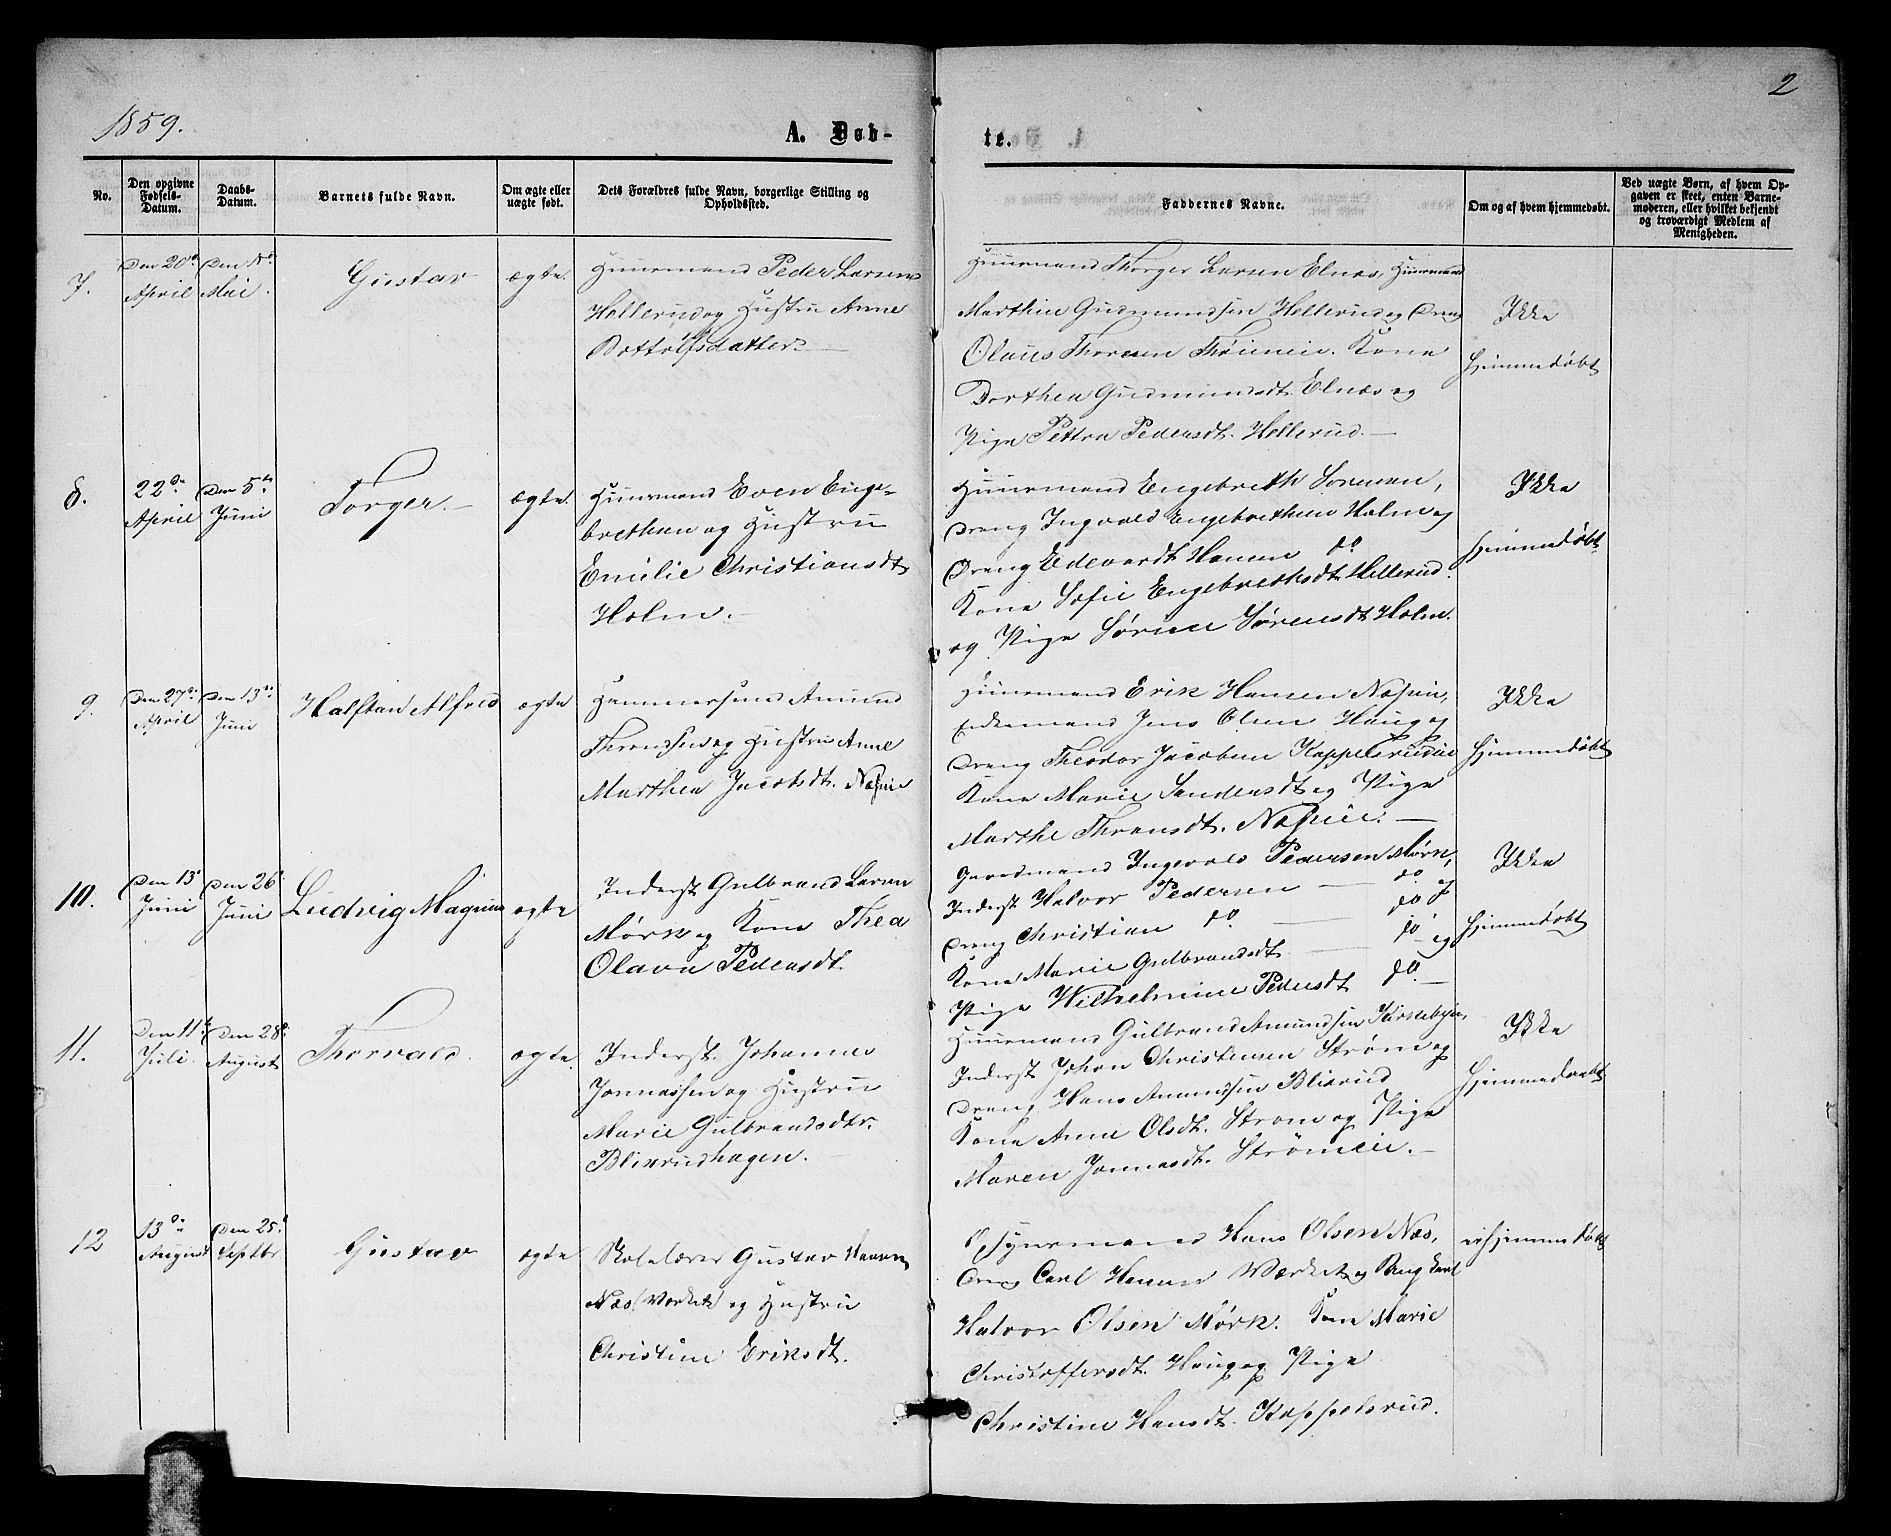 1859.
2
A. Døb-
te.
No.
Den opgivne Fødsels-Datum.
Daabs-Datum.
Barnets fulde Navn.
Om ægte eller uægte født.
Dets Forældres fulde Navn, borgerlige Stilling og Opholdssted.
Faddernes Navne.
Om og af hvem hjemmedøbt.
Ved uægte Børn, af hvem Opgaven er skeet, enten Barnemoderen, eller hvilket bekjendt og troværdigt Medlem af Menigheden.
7.
Den 20de April
Mai
Gustav
ægte.
Huusmand Peder Larsen
Hellerud og Hustru Anne
Bottolfsdatter.
Huusmand Thorger Larsen Elnæs, Huusmand
Marthin Gudmundsen Hellerud og Dreng
Olaus Thoresen Kone
Dorthea Gudmundsdt. Elnæs og
Pige Pettra Pedersdt. Hellerud.
Ikke
hjemmedøbt
8.
22de April
Den 5te Juni
Torger.
ægte.
Huusmand Even Enge-
brethsen og Hustru
Emilie Christiansdt
Holm.
Huusmand Engebreth Sørensen,
Dreng Ingvald Engebrethsen Holm og
Dreng Edevardt Hansen do
Kone Sofie Engebrethsdt. Hellerud.
og Pige Sørine Sørensdt Holm.
Ikke
hjemmedøbt
9.
Den 27de April
Den 13de Juni
Halftan Alfred
ægte
Hammersmed Amund
Thronsen og Hustru Anne
Marthea Jacobsdt.
Huusmand Erik Hansen
Enkemand Jens Olsen Haug og
Dreng Theodor Jacobsen
Kone Marie og Pige
Marthe Thronsdt.
Ikke
hjemmedøbt
10.
Den 13de Juni
Den 26de Juni
Ludvig Magnus
ægte
Inderst Gulbrand Larsen
Mørk og Kone Thea
Olava Pedersdt.
Gaardmand Ingevald Pedersen Mørk,
Inderst Halvor Pedersen do og
Dreng Christian do. do
Kone Marie Gulbrandsdt. do og
Pige Wilhelmine Pedersdt do.
Ikke
hjemmedøbt
11.
Den 11te Juli
Den 28de August
Thorvald.
ægte.
Inderst. Johannes
Jonnassen og Hustru
Marie Gulbrandsdtr.
Blixrudhagen.
Huusmand Gulbrand Amundsen Kirkebyen,
Inderst Johan Christensen Strøm og
Dreng Hans Amundsen Blixrud
Kone Anne Olsdt. Strøm og Pige
Maren Jonnasdt. Strømeie.
Ikke
hjemmedøbt
12
13de August
Den 25de Septbr
Gustav
ægte
Skolelærer Gustav Hansen
Næs (Værket) og Hustru
Christine Eriksdt.
Opsynsmand Hans Olsen Næs,
Dreng Carl Hansen Værket og Ung karl
Halvor Olsen Mørk. Kone Marie
Christoffersdt. Haug og Pige
Christine Hansdt. Kappelsrud.
er hjemmedøbt